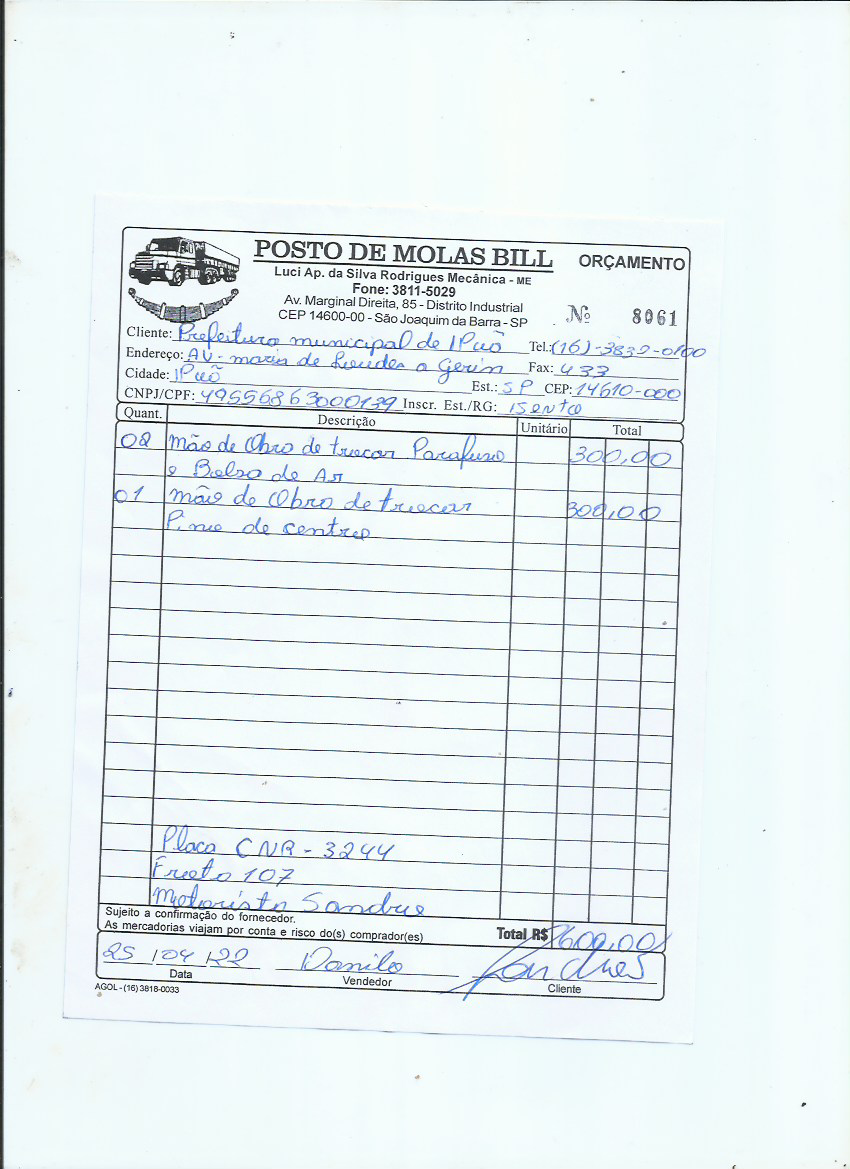 POSTO DE MOLAS BILL
ORÇAMENTO
Luci Ap. da Silva Rodrigues Mecânica - ME
Fone: 3811-5029
Av. Marginal Direita, 85 - Distrito Industrial
CEP 14600-00 - São Joaquim da Barra - SP
Nº 8061
Cliente: Prefeitura municipal de IPuã Tel.: (16)-3832-0100
Endereço: AV - maria de Lourdes a Gerin Fax: 433
Cidade: IPuã Est.: SP CEP: 14610-000
CNPJ/CPF: 49556863000139 Inscr. Est./RG: isento
Quant. Descrição Unitário Total
02 mão de Obra de trocar Parafuso 300,00
e Bolsa de Ar
01 mão de Obra de trocar 300,00
Pino de centro
Placa CNR - 3244
Frota 107
Motorista Sandro
Sujeito a confirmação do fornecedor.
As mercadorias viajam por conta e risco do(s) comprador(es)
Total R$ 600,00
25 / 04 / 22 Danilo
Data Vendedor Cliente
AGOL - (16) 3818-0033